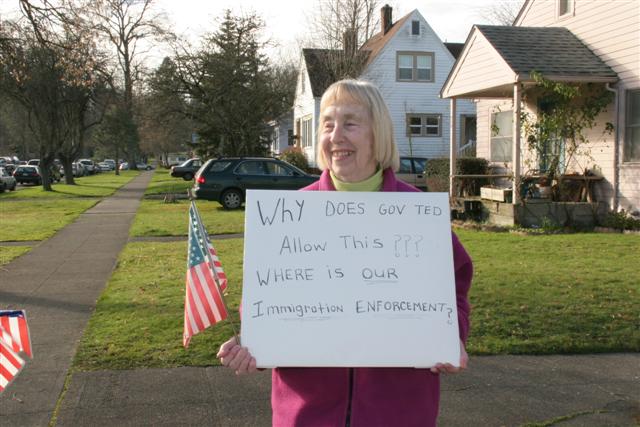 WHY DOES GOV TED
Allow This ???
WHERE is OUR
Immigration ENFORCEMENT?